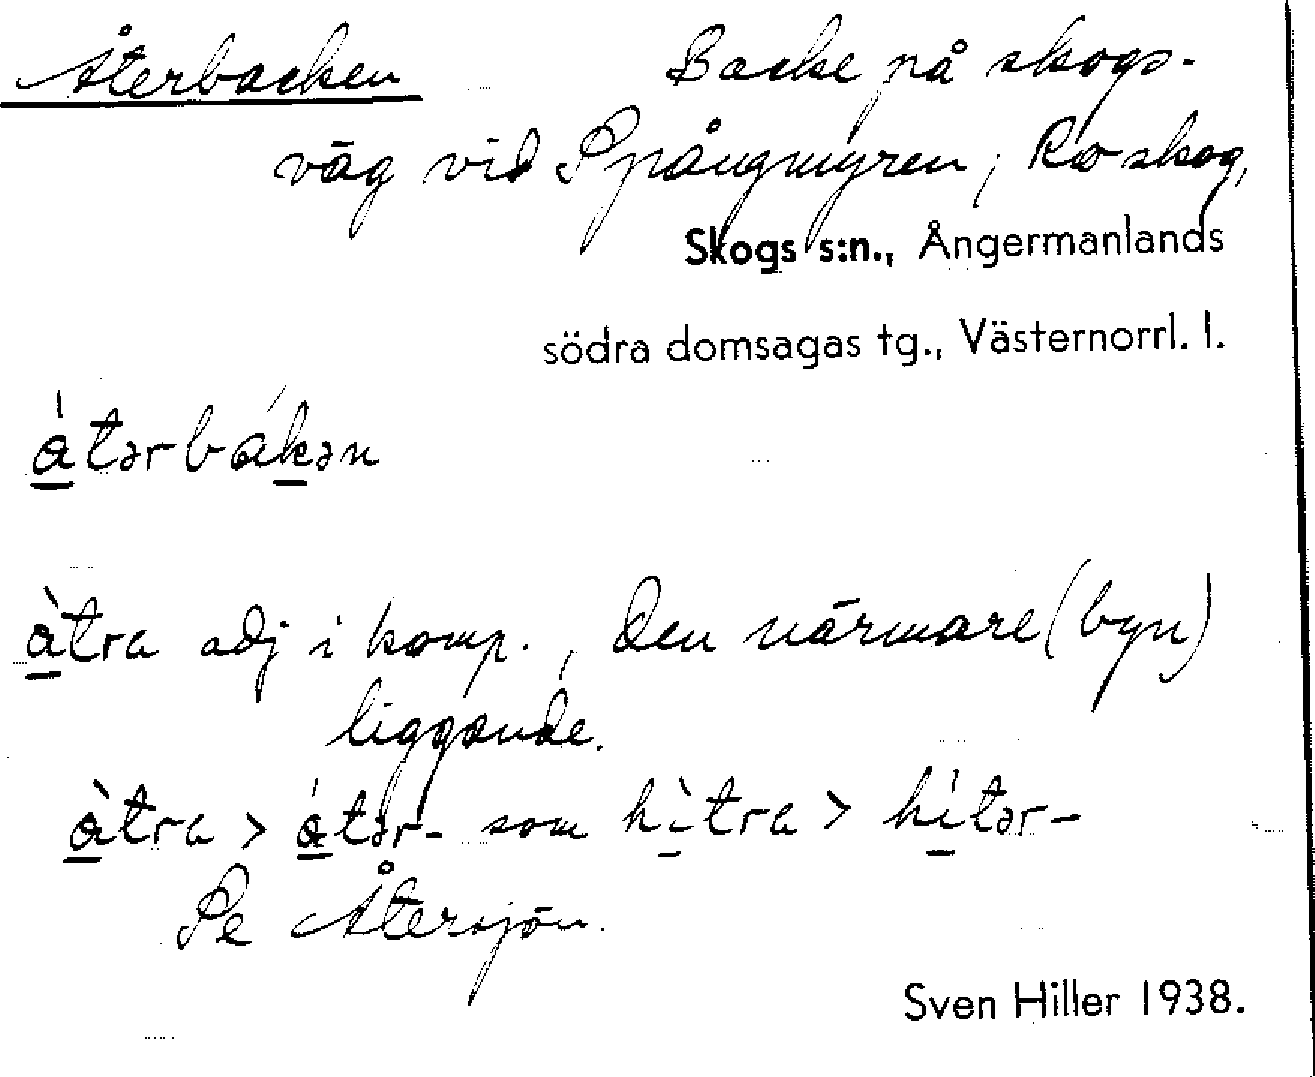 Återbacken Backe på skogs-
väg vid Spångmyren, Ro skog,
Skogs s:n., Ångermanlands
södra domsagas tg., Västernorrl. l.
àtərbákən
àtra adj i komp., den närmare (byn)
liggande.
àtra > átər- som hìtra > hítər-
Se Återsjön.
Sven Hiller 1938.